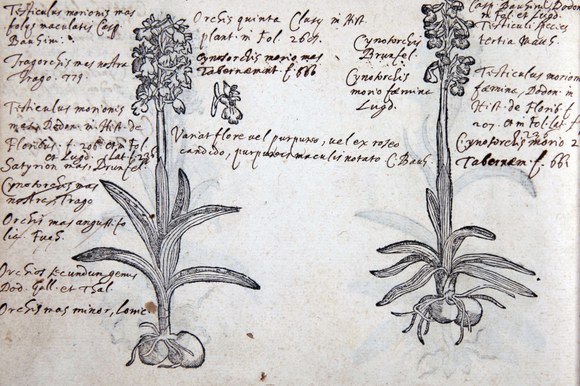 Testiculus morionis mas
folijs maculatis Casp.
Bauhini.
Tragorchis mas nostra
Trago. 779.
Testiculus morionis
mas Dodon. in Hist. de
Floribus. f. 206. et in Fol.
et Lugd.
Satyrion mas, Brunfel.
Cynosorchis mas
nostras, Trago
Orchis mas angustifo
lia. Fuch.
Orchios secundum genus
Dod. Gall. et Thal.
Orchis mas minor, Lonic.
Orchis quinta Clusij in Hist.
plant. in Fol. 268.
Cynosorchis morio mas
Tabernaemt. f. 666
Variat flore vel purpureo, vel ex roseo
candido, purpureis maculis notato C. Bauh.
Cynosorchis
Brunfel.
Cynosorchis
morio fæmina
Lugd.
Casp. Bauhini, Dodon
in Fol. et Lugd.
Testiculi species
tertia Math.
Testiculus morionis
fæmina, Dodon. in
Hist. de Floribus f.
207. et in Fol. lat. f.
Cynosorchis morio
Tabernæm. f. 665